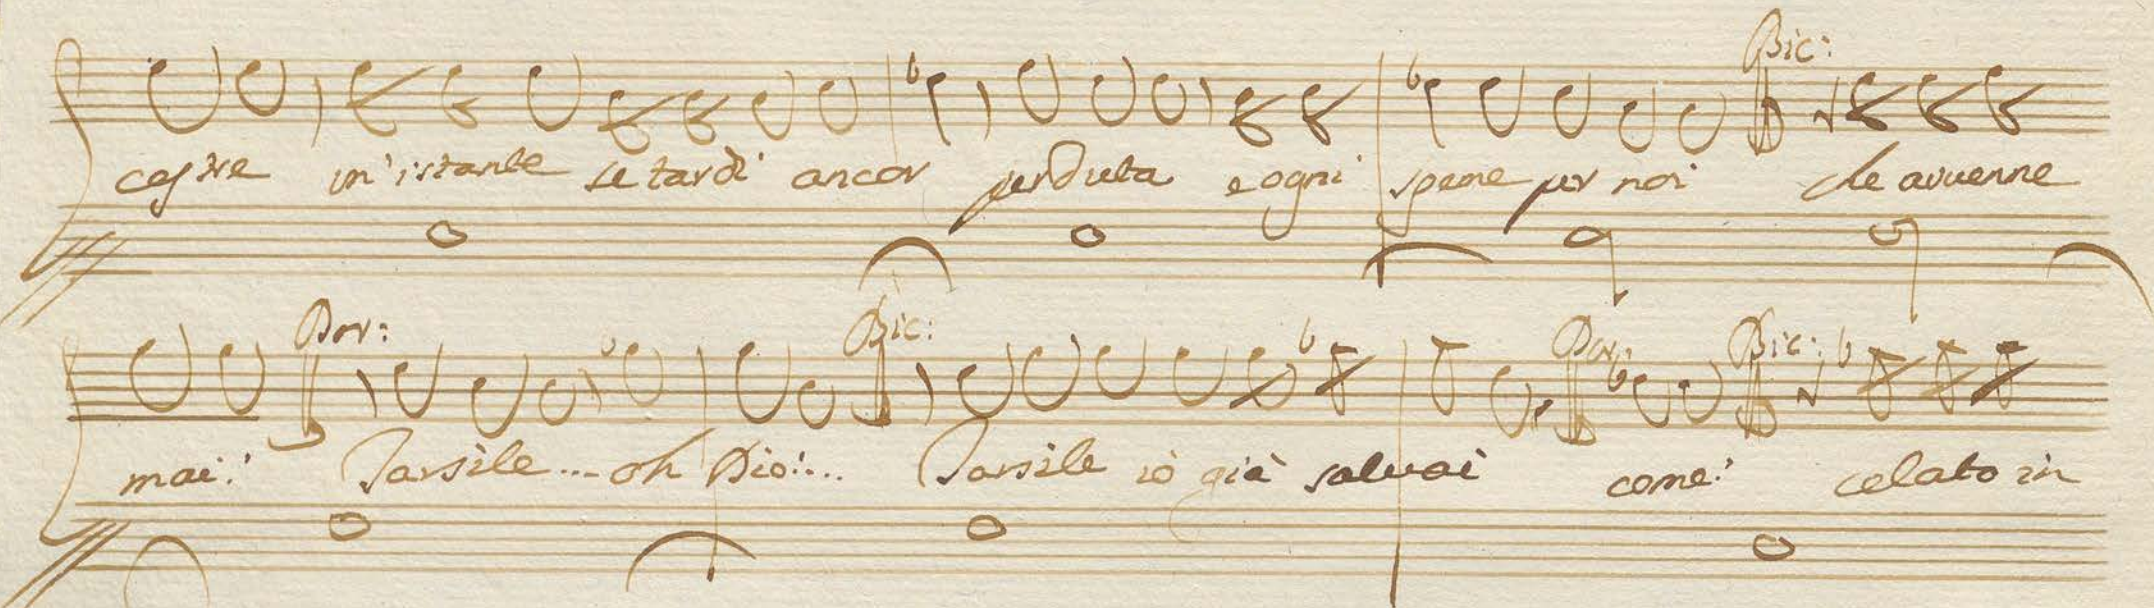 Bic:
un'istante se tardi ancor perduta e ogni speme per noi che avvenne
Dor: Bic: Dor: Bic:
mai! Tarsile... oh Dio!... Tarsile iò già salvai come! celato in